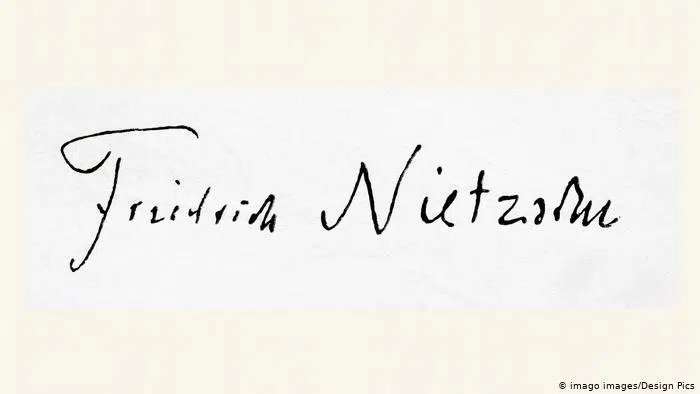 Friedrich Nietzsche
© imago images/Design Pics